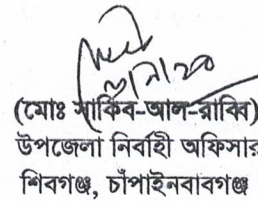 (মোঃ সাকিব-আল-রাব্বি)
উপজেলা নির্বাহী অফিসার
শিবগঞ্জ, চাঁপাইনবাবগঞ্জ